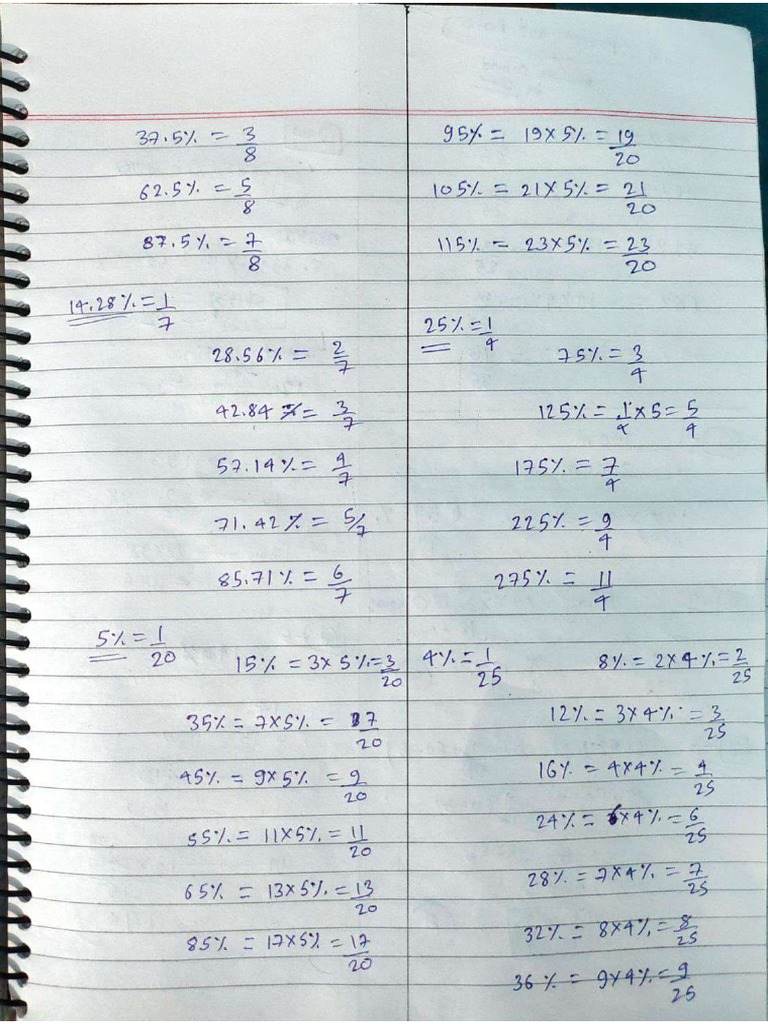 37.5% = 3/8
62.5% = 5/8
87.5% = 7/8
14.28% = 1/7
28.56% = 2/7
42.84 % = 3/7
57.14% = 4/7
71.42% = 5/7
85.71% = 6/7
5% = 1/20
15% = 3×5% = 3/20
35% = 7×5% = 7/20
45% = 9×5% = 9/20
55% = 11×5% = 11/20
65% = 13×5% = 13/20
85% = 17×5% = 17/20
95% = 19×5% = 19/20
105% = 21×5% = 21/20
115% = 23×5% = 23/20
25% = 1/4
75% = 3/4
125% = 1/4×5 = 5/4
175% = 7/4
225% = 9/4
275% = 11/4
4% = 1/25
8% = 2×4% = 2/25
12% = 3×4% = 3/25
16% = 4×4% = 4/25
24% = 6×4% = 6/25
28% = 7×4% = 7/25
32% = 8×4% = 8/25
36% = 9×4% = 9/25